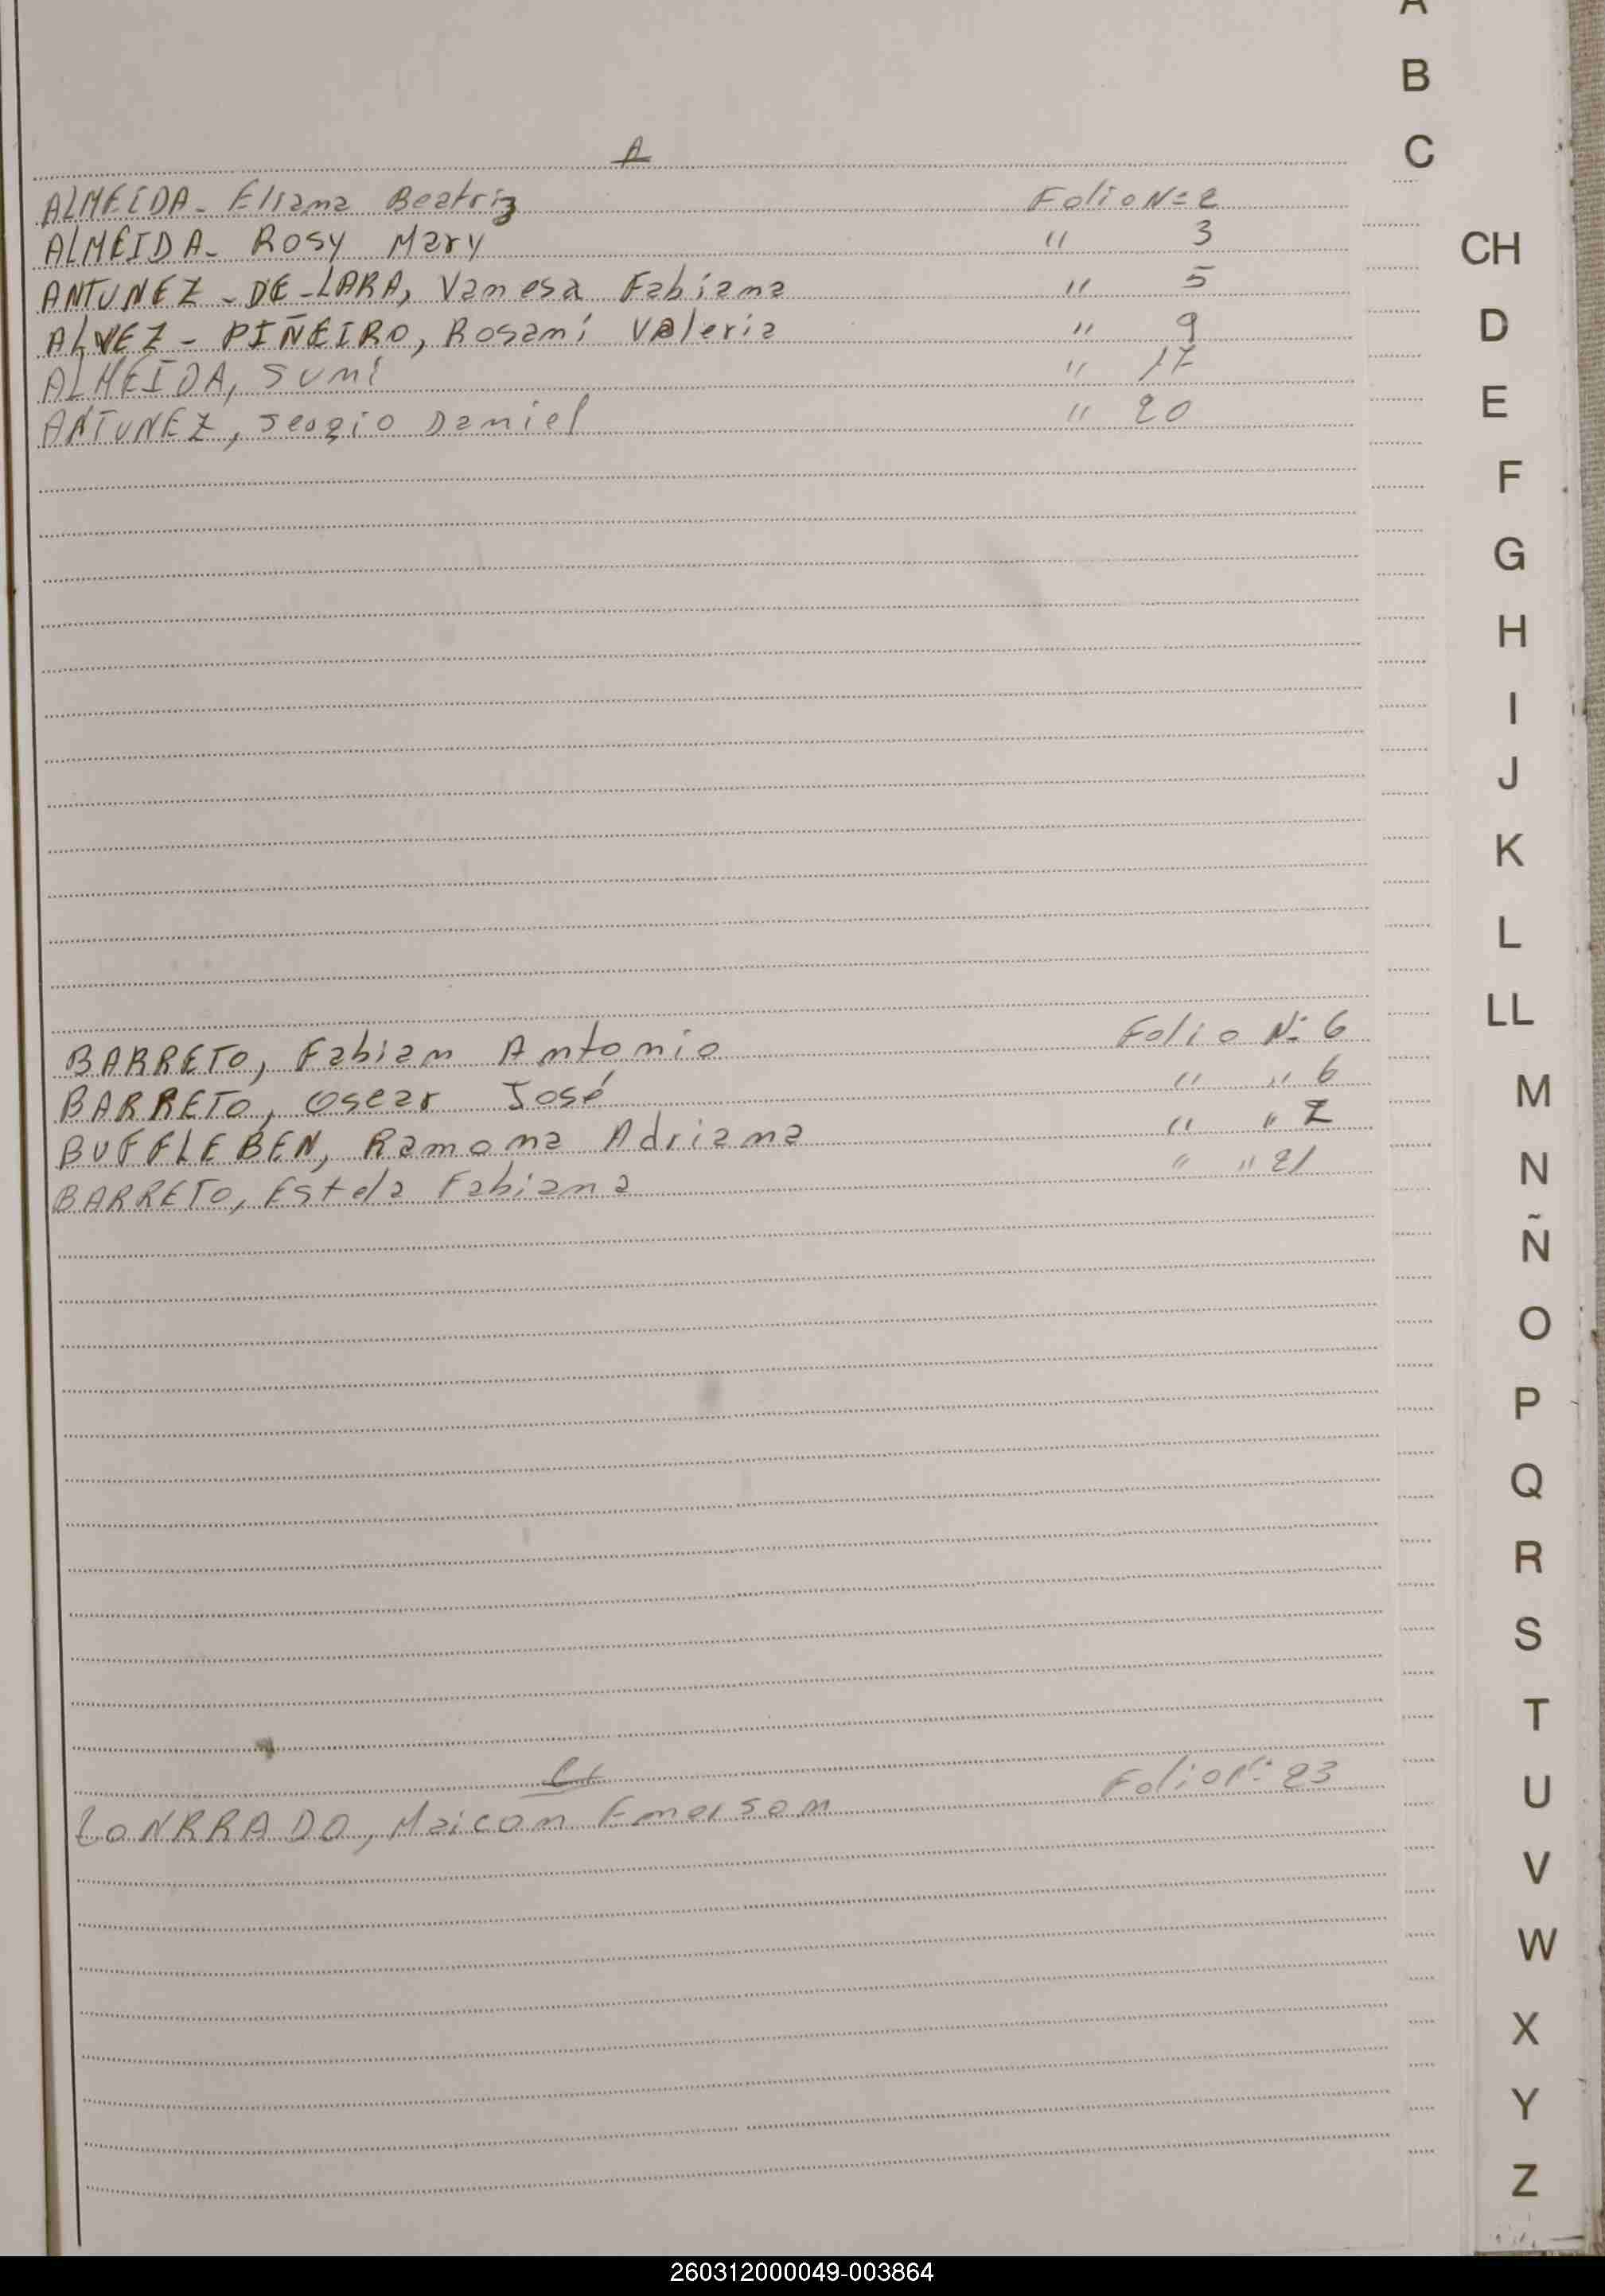 A
B
C
CH
D
E
F
G
H
I
J
K
L
LL
M
N
Ñ
O
P
Q
R
S
T
U
V
W
X
Y
Z
A
ALMEIDA- Eliana Beatriz Folio Nº 2
ALMEIDA- Rosy Mary " 3
ANTUNEZ - DE - LARA, Vanesa Fabiana " 5
ALVEZ - PIÑEIRO, Rosani Valeria " 9
ALMEIDA, Suni " 17
ANTUNEZ, Sergio Daniel " 20
BARRETO, Fabian Antonio Folio Nº 6
BARRETO, Oscar José " " 6
BUFFLEBEN, Ramona Adriana " " 7
BARRETO, Estela Fabiana " " 21
C
CONRRADO, Maicon Emerson Folio Nº 23
260312000049-003864